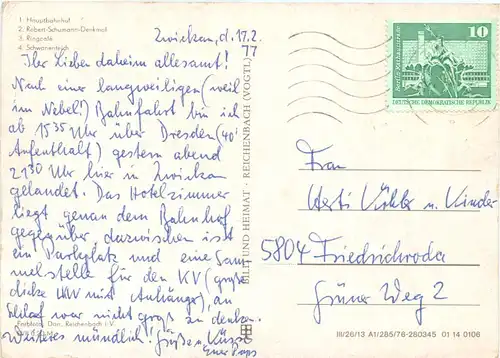 1 Hauptbahnhof
2. Robert-Schumann-Denkmal
3. Ringcafé
4. Schwanenteich
Zwickau, d. 17.2.
77
Ihr Lieben daheim allesamt!
Nach einer langweiligen (weil
im Nebel!) Bahnfahrt bin ich
ab 15³⁵ Uhr über Dresden (40'
Aufenthalt) gestern abend
21³⁰ Uhr hier in Zwickau
gelandet. Das Hotelzimmer
liegt genau dem Bahnhof
gegenüber dazwischen ist
ein Parkplatz und eine Sam-
melstelle für den KV (große
dicke LKW mit Anhänger), an
Schlaf war nicht groß zu denken.
Weiteres mündlich! Grüße u. Küsse
Euer Papa
BILD UND HEIMAT · REICHENBACH (VOGTL)
10
Berlin, Rathausstraße
DEUTSCHE DEMOKRATISCHE REPUBLIK
Frau
Herta u. Kinder
5804 Friedrichroda
Grüner Weg 2
III/26/13 A1/285/76-280345 01 14 0106